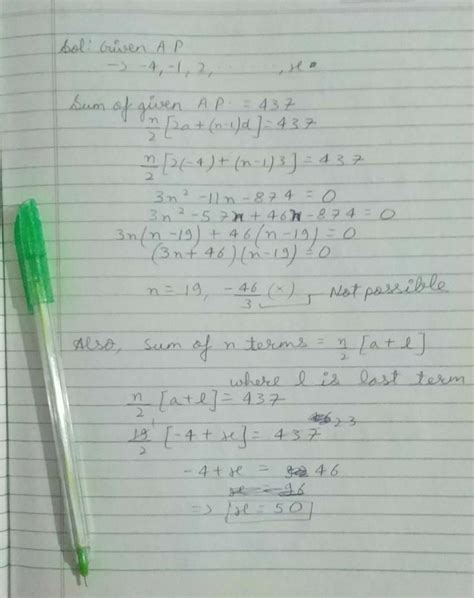 Sol: Given A P
→ -4, -1, 2, ......., x.
Sum of given A P. = 437
n/2 [2a + (n-1)d] = 437
n/2 [2(-4) + (n-1)3] = 437
3n² - 11n - 874 = 0
3n² - 57n + 46n - 874 = 0
3n(n-19) + 46(n-19) = 0
(3n+46)(n-19) = 0
n = 19, -46/3 (×) → Not possible
Also, sum of n terms = n/2 [a + l]
where l is last term
n/2 [a + l] = 437
19/2 [-4 + x] = 437 23
-4 + x = 46
⇒ x = 50